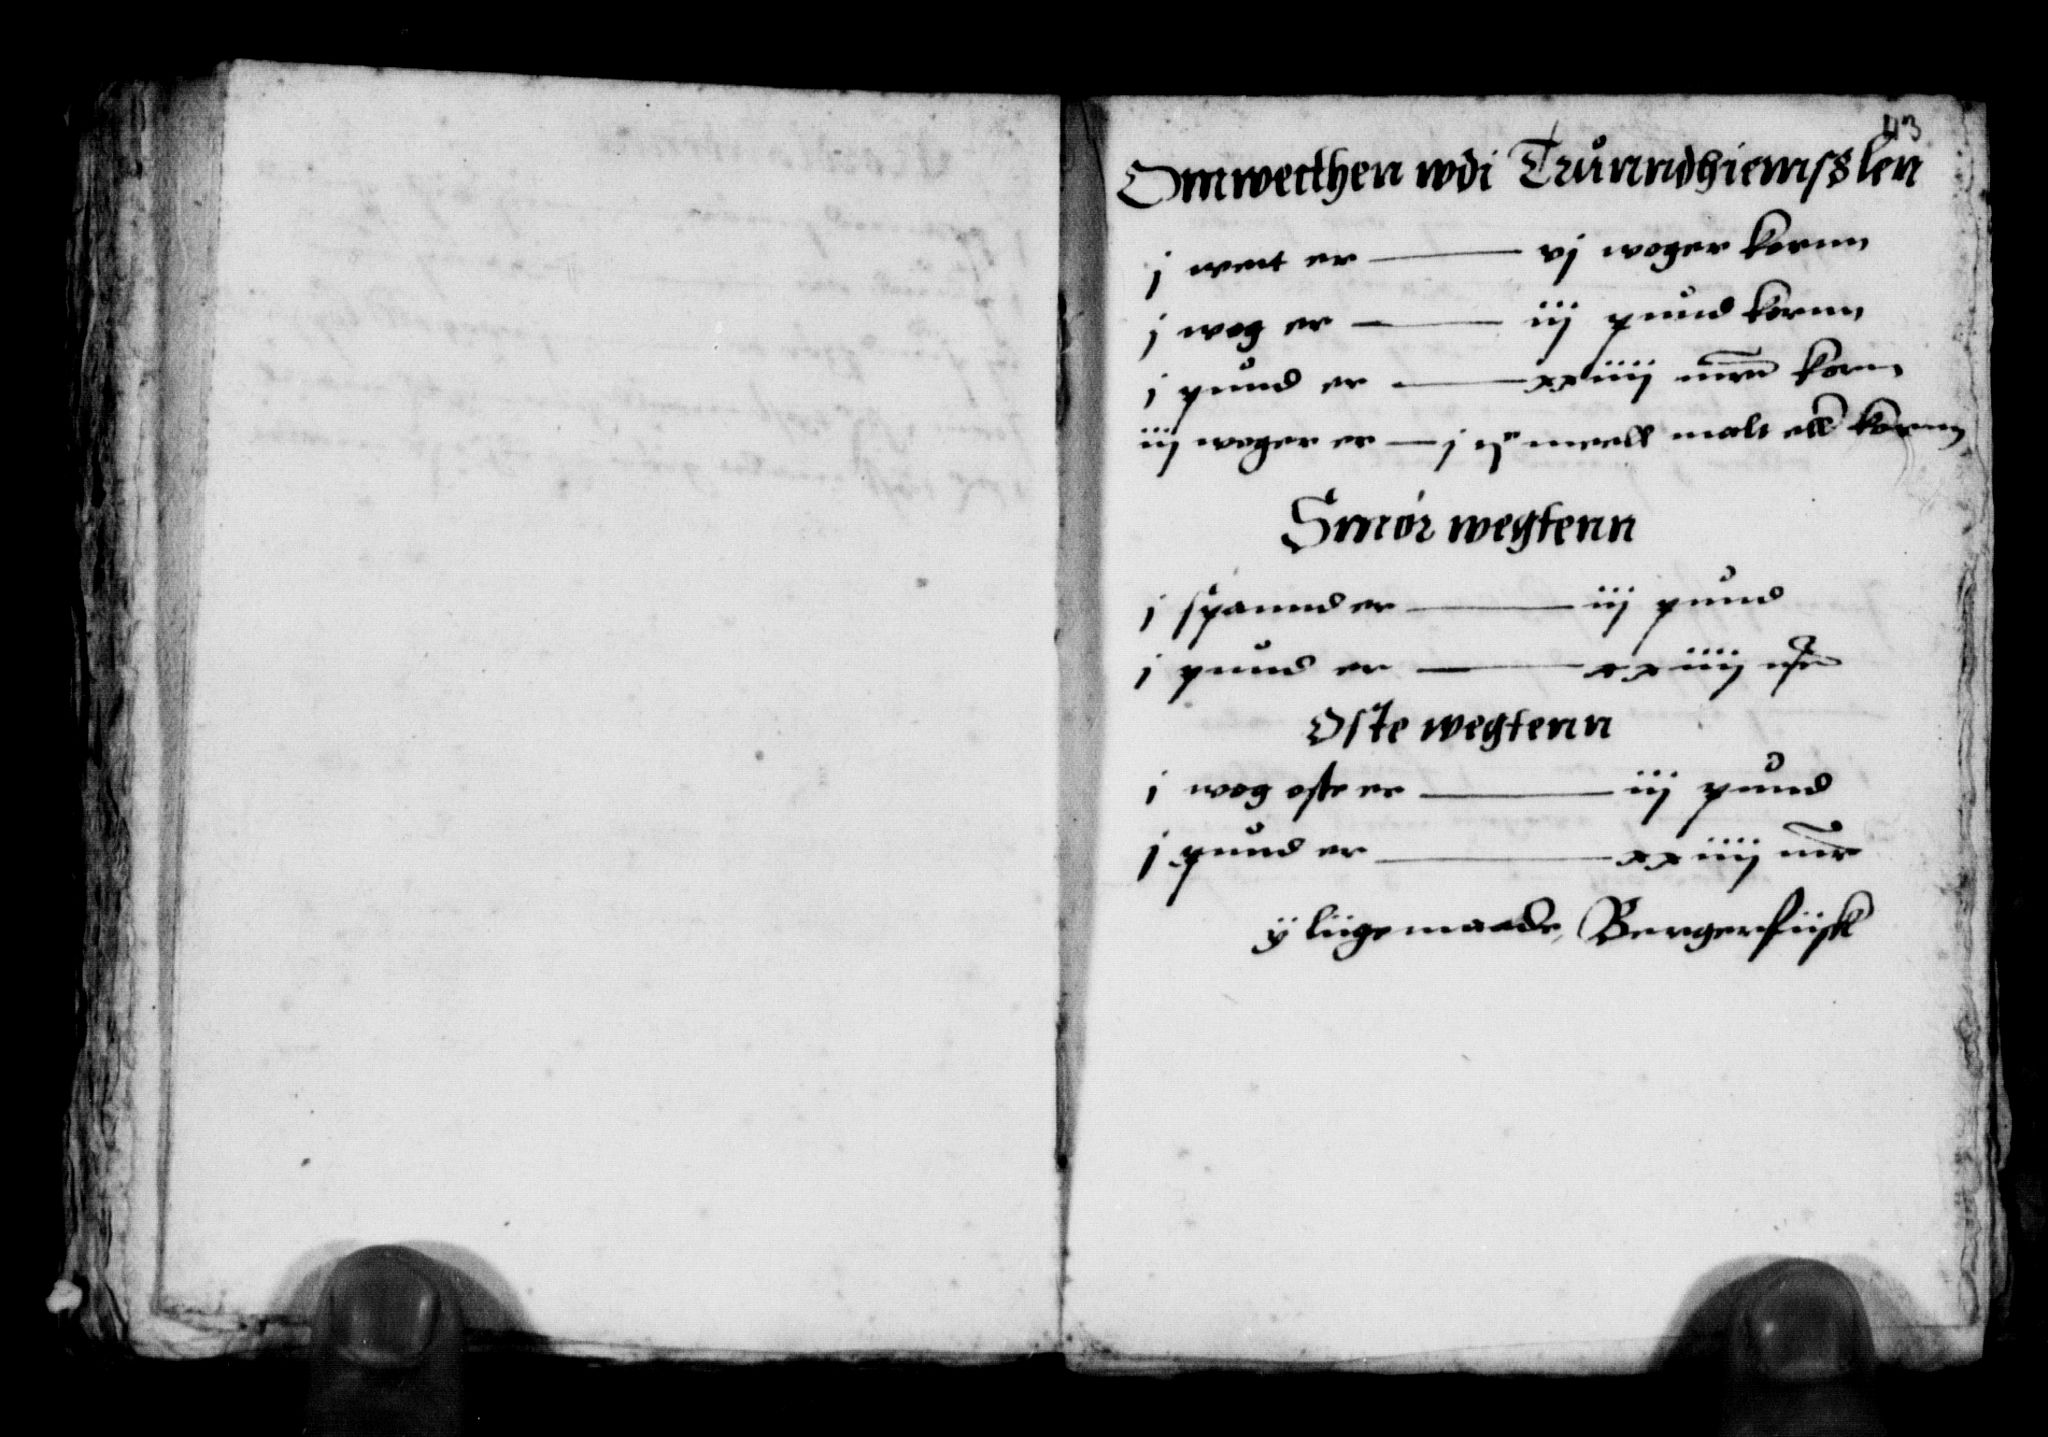 43
Omwecthen wdi Trůnndhiemsß len
j wect er — vj woger kornn
j wog er — iij pŭnd kornn
j pŭnd er — xxiiij mrͬ korn
iij woger er — j meell malt ell kornn
Smör wegtenn
j spannd er — iij pŭnd
j pŭnd er — xxiiij
Oste wegtenn
j wog oste er — iij pŭnd
j pŭnd er — xxiiij mr
ÿ liige maade Bergerfiisk